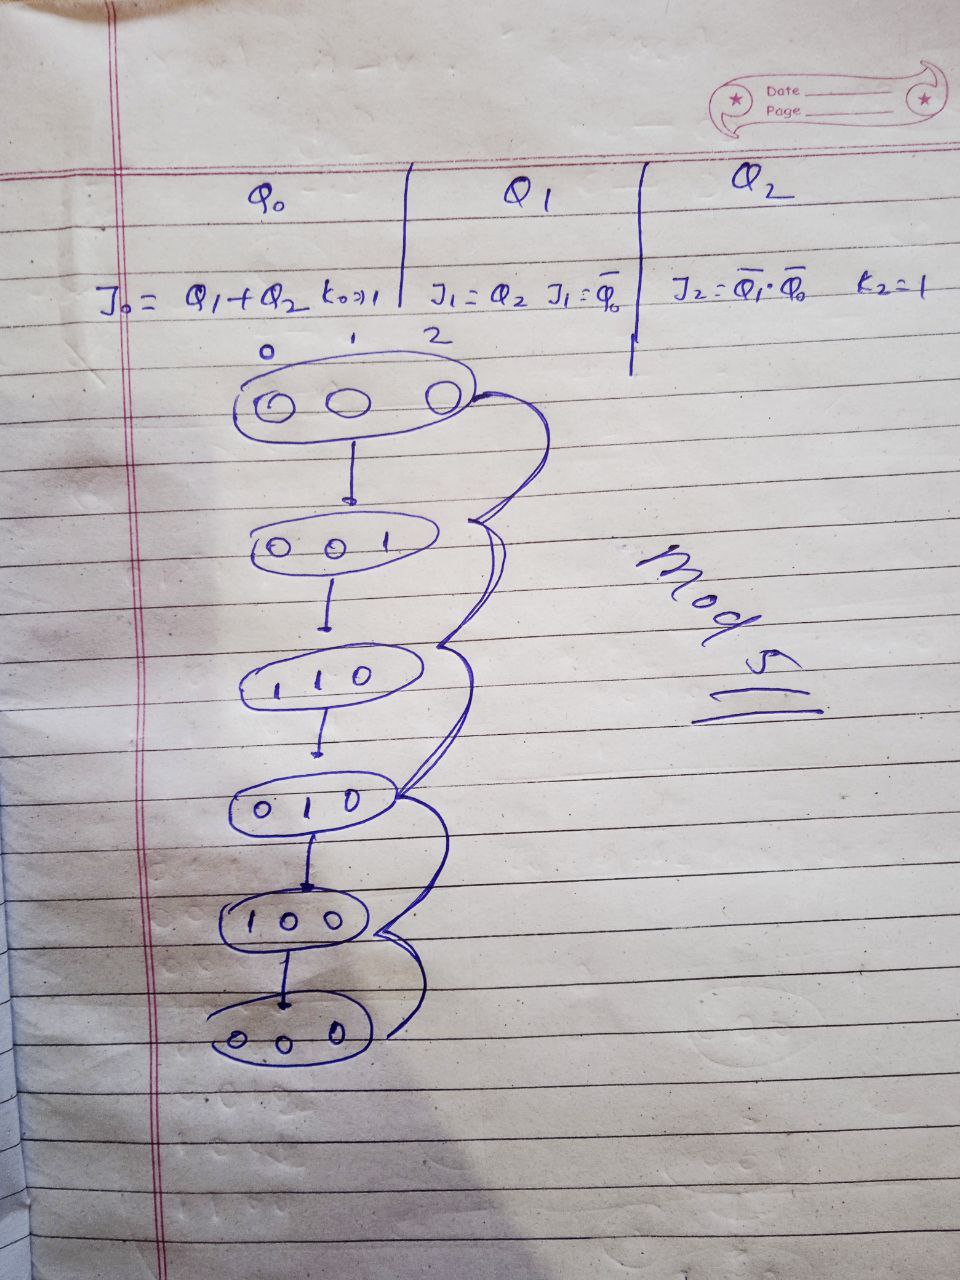 Date
Page
Q₀ Q1 Q2
J₀ = Q1 + Q2 K₀ = 1 J1 = Q2 J1 = Q̅₀ J2 = Q̅1 · Q̅₀ K2 = 1
0 1 2
0 0 0
0 0 1
1 1 0
0 1 0
1 0 0
0 0 0
Mod 5